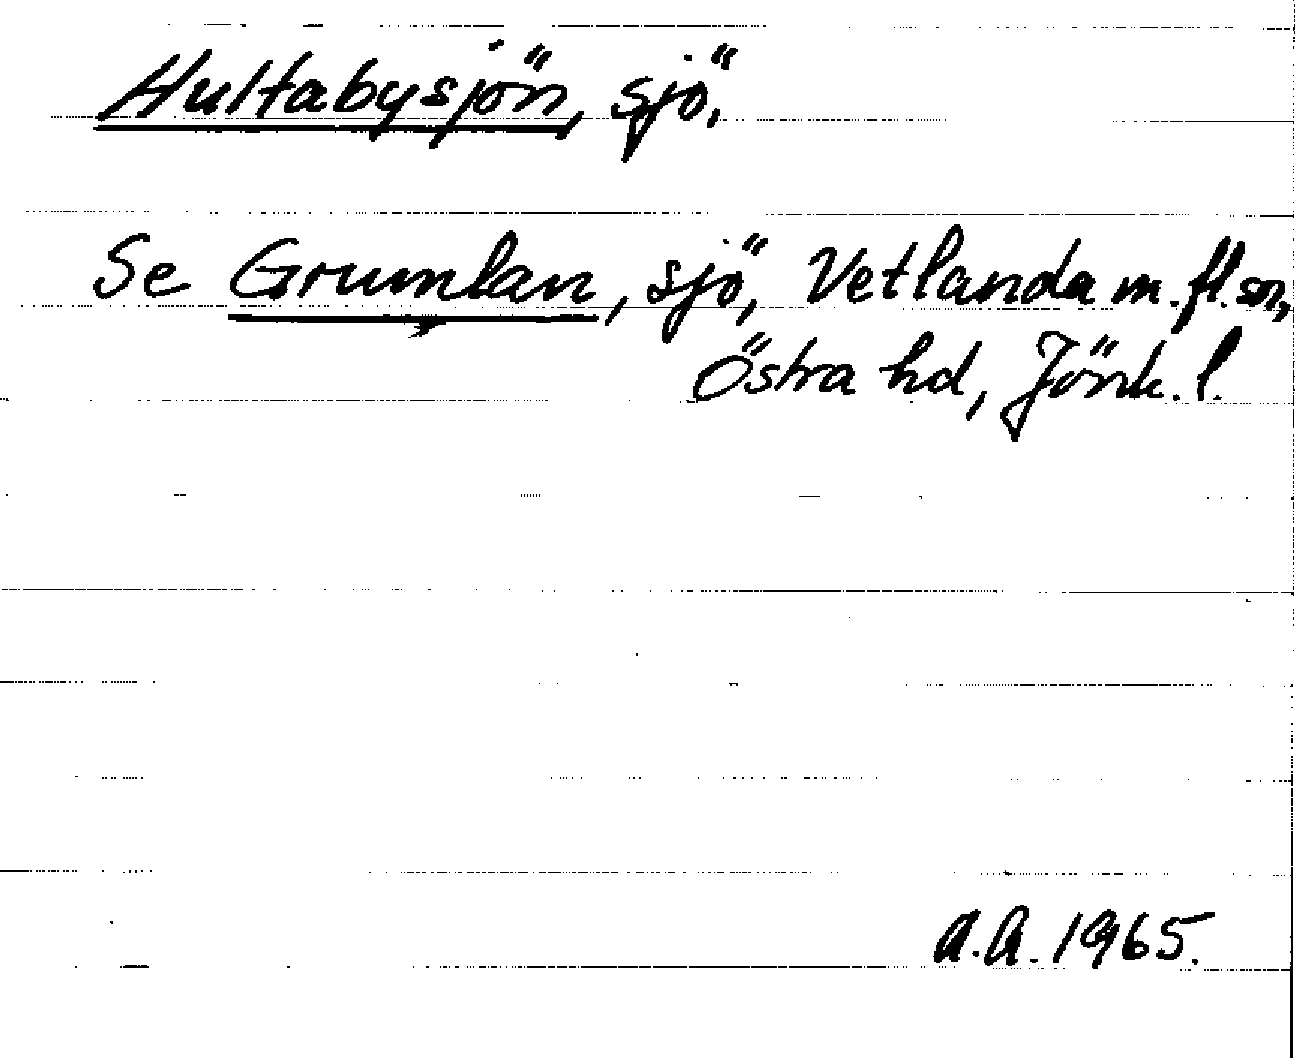 Hultabysjön, sjö,
Se Grumlan, sjö, Vetlanda m.fl.sn,
Östra hd, Jönk.l.
A.A. 1965.